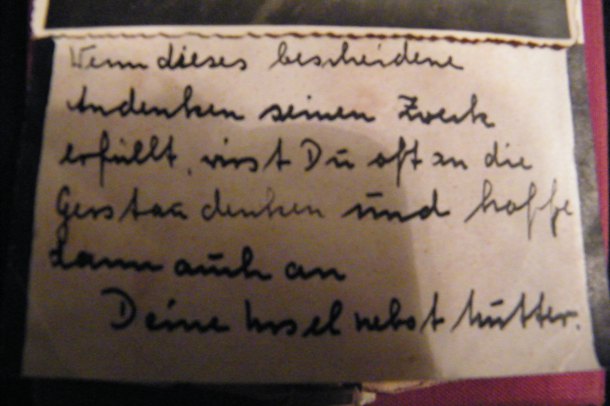 Wenn dieses bescheidene
Andenken seinen Zweck
erfüllt, wirst Du oft an die
denken und hoffe
dann auch an
Deine Ursel nebst Mutter.